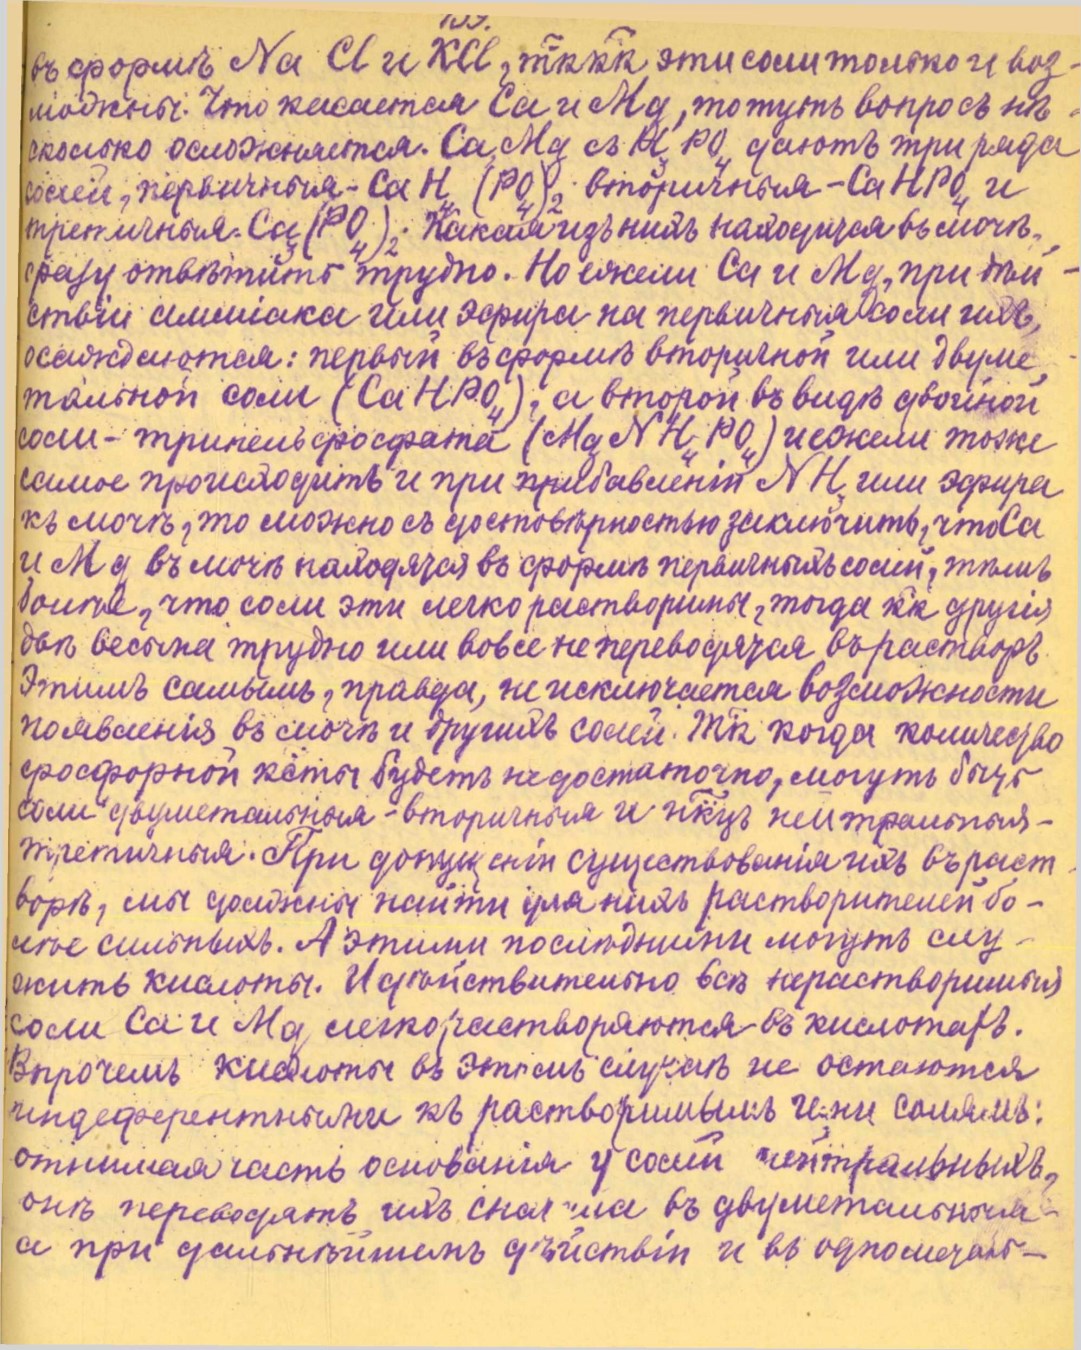 159.
въ формѣ Na Cl и KCl, ткккк эти соли только и воз-
можны. Что касается Ca и Mg, то тутъ вопросъ нѣ-
сколько осложняется. Ca, Mg съ H3PO4 даютъ три ряда
солей, первичныя - CaH4(PO4)2. вторичныя - CaHPO4 и
третичныя. Ca3(PO4)2. Какая изъ нихъ находится въ мочѣ,
сразу отвѣтить трудно. Но ежели Ca и Mg, при дѣй-
ствіи амміака или эфира на первичныя соли ихъ,
осаждаются: первый въ формѣ вторичной или двуме-
тальной соли (CaHPO4), а второй въ видѣ двойной
соли - трипельфосфата (MgNH4PO4) и ежели тоже
самое происходитъ и при прибавленіи NH3 или эфира
къ мочѣ, то можно съ достовѣрностью заключить, что Ca
и Mg въ мочѣ находятся въ формѣ первичныхъ солей, тѣмъ
болѣе, что соли эти легко растворимы, тогда кк другія
двѣ весьма трудно или вовсе не переводятся въ растворъ.
Этимъ самымъ, правда, не исключается возможности
появленія въ мочѣ и другихъ солей. Тк когда количество
фосфорной кѣты будетъ недостаточно, могутъ быть
соли двуметальныя - вторичныя и нкцъ нейтральныя -
третичныя. При допущеніи существованія ихъ въ раст-
ворѣ, мы должны найти для нихъ растворителей бо-
лѣе сильныхъ. А этими послѣдними могутъ слу-
жить кислоты. И дѣйствительно всѣ нерастворимыя
соли Ca и Mg легко растворяются въ кислотахъ.
Впрочемъ кислоты въ этомъ случаѣ не остаются
индеферентными къ растворимымъ ими солямъ:
отнимая часть основанія у солей нейтральныхъ,
онѣ переводятъ ихъ сначала въ двуметальныя -
а при дальнѣйшемъ дѣйствіи и въ однометаль-